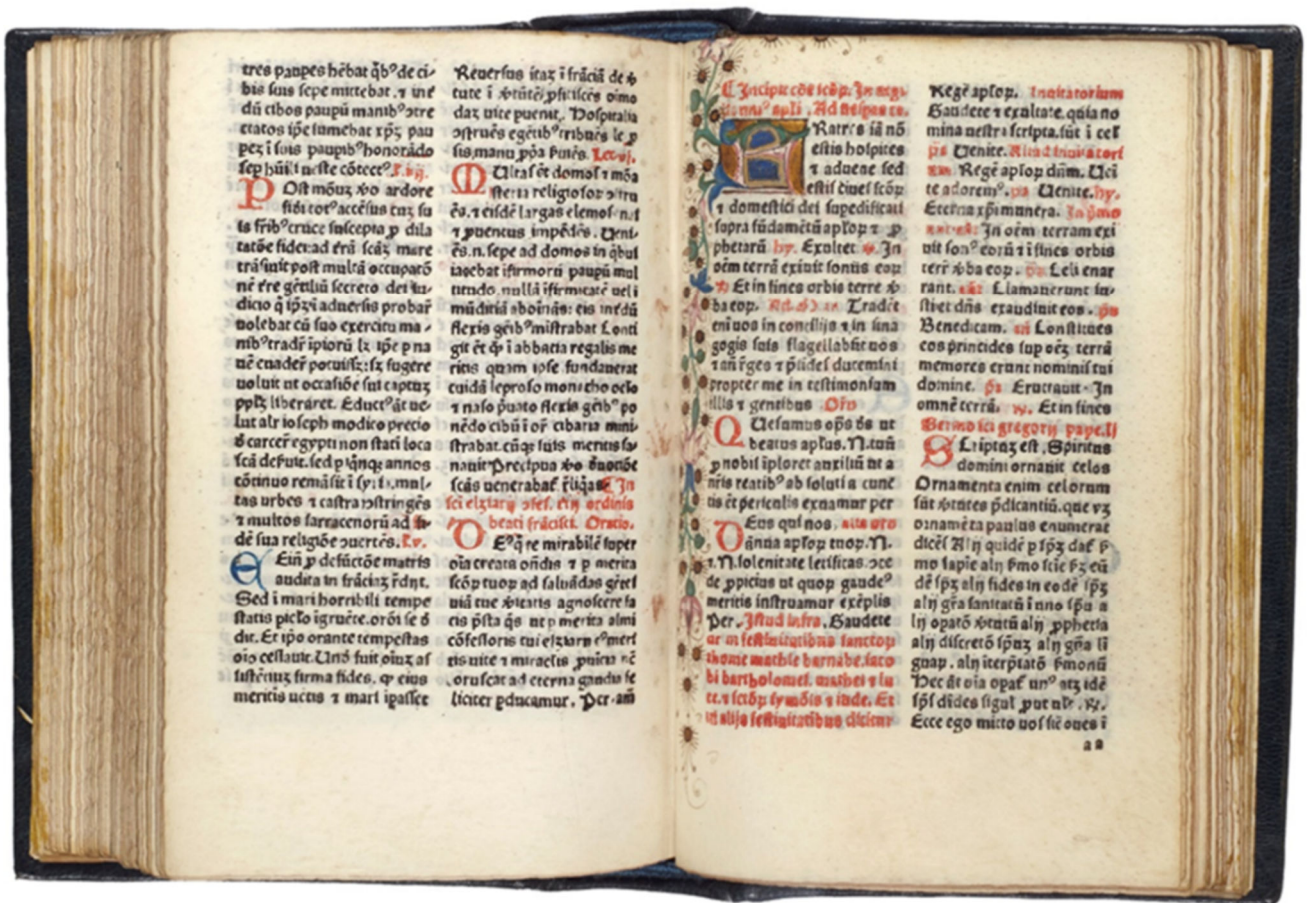 tres paupes hēbat q̄bꝰ de ci-
bis suis sepe mittebat. ⁊ inē
dū cibos paupū manibꝰ ꝯtre
ctatos ip̄e sumebat xp̄ꝫ pau
peꝫ ī suis paupibꝰ honorādo
P Ost mōuꝫ ꝟo ardore
fidi totꝰ accēsus cuꝫ su
is frībꝰ cruce suscepta ꝓ dila
tatōe fidei ad trā scāꝫ mare
trāsiuit post multā occupatō
nē tre gētiliū secreto dei iu-
dicio q̄ ip̄ꝫ ī aduersis probar̄
uolebat cū suo exercitu ma-
nibꝰ tradr̄ īpiorū lꝫ ip̄e p na
uē euader̄ potuisꝫ: sꝫ fugere
uoluit ut occasiōe sui captuꝫ
pplꝫ liberaret. Eductꝰ āt ue-
lut alr̄ ioseph modico precio
d̄ carcer̄ egypti non stati loca
scā deseruit. sed p q̄nqꝫ annos
cōtinuo remāsit ī syria. mul-
tas urbes ⁊ castra ꝯstringēs
⁊ multos sarracenorū ad fi-
dē sua religiōe ꝯuertēs.
E Ein ꝓ defūctōe matris
audita in frāciaꝫ r̄dnt.
Sed ī mari horribili tempe
statis piclo īgruēte. orōi se d̄
dit. Et ip̄o orante tempestas
oīo cessauit. Und̄ fuit oīuꝫ as
sistētiuꝫ firma fides. ꝙ eius
meritis uētis ⁊ mari īpasset
Reuersus itaꝫ ī frāciā de ꝟ
tute ī ꝟtutē ꝓficiscēs oīmo
daꝫ uite puenit. Hospitalia
ꝯstruēs egētibꝰ tribuēs le p
sis, manu ꝓp̄a
M Ultas ēt domos ⁊ mōa
steria religiosoꝝ ꝯstru
ēs. ⁊ eisdē largas elemos
⁊ ꝓuentus impēdēs. Ueni-
ēs. n. sepe ad domos in q̄bus
iacebat īfirmorū paupū mul
titudo. nullā īfirmitatē uel ī
mūditiā abomīnās: eis inēdū
flexis gēibꝰ mīstrabat. Conti
git ēt ꝙ ī abbatia regalis mō
tis quam ipse fundauerat
cuidā leproso monacho oclo
⁊ naso p̄uato flexis gēibꝰ po
nēdo cibū ī oꝛ̄ cibaria mini-
strabat. cūqꝫ suis meritis sa-
nauit Precipua ꝟo deuotiōe
scās uenerabat̄ r̄liqas. ¶ In
sci elzearij ꝯfes. ordinis
beati frācisci. Oratio.
D Eꝰ q̄ re mirabile super
oīa creata oñdis ⁊ p merita
scōꝝ tuoꝝ ad saluādas gētes
uiā tue ꝟitatis agnoscere fa
cis p̄sta q̄s ut p merita almi
cōfessoris tui elzearij
tis uite ⁊ miraclis ꝓuīcia
coruscat ad eterna gaudia fe
liciter pducamur. Per. añ
¶ Incipit cōe scōꝝ. In uigi
apli. Ad uesperas ca.
F Ratres iā nō
estis hospites
⁊ aduene sed
estis ciues scōꝝ
⁊ domestici dei supedificati
supra fūdamētū aploꝝ ⁊ ꝓ
phetarū hy. Exultet ꝟ. In
oēm terrā exiuit sonus eoꝝ
ꝶ Et in fines orbis terre ꝟ
ba eoꝝ. Tradēt
enī uos in concilijs ⁊ in sina
gogis suis flagellabūt uos
⁊ añ r̄ges ⁊ p̄sides ducemini
propter me in testimonium
illis ⁊ gentibus Oro
Q Uesumus ops ds ut
beatus aplus. N. tuū
ꝓ nobis īploret auxiliū ut a
nr̄is reatibꝰ absoluti a cunc
tis ēt periculis exuamur per
D Eus qui nos, alia oro
ānua aploꝝ tuoꝝ. N.
⁊. N. solenitate letificas. ꝯce
de ꝓpicius ut quoꝝ gaudeꝰ
meritis instruamur exēplis
Per. Istud infra. Gaudete
ar in festiuitatibus sanctoꝝ
thome mathie barnabe. iaco
bi bartholomei. mathei ⁊ lu
ce. ⁊ sctōꝝ symōis ⁊ iude. Et
in alijs festiuitatibus dicitur
Regē aploꝝ. Inuitatorium
Gaudete ⁊ exultate. quia no
mina uestra scripta. sūt ī cel
ps Uenite. Aliud inuitatori
um. Regē aploꝝ dn̄m. Ueni
te adoremꝰ. ps Uenite. hy.
Eterna xp̄i munera. In p̄mo
In oēm terram exi
uit sonꝰ eorū ⁊ ī fines orbis
terr̄ ꝟba eoꝝ. ps Celi enar
rant. añ Clamauerunt iu-
sti et dn̄s exaudiuit eos. ps
Benedicam. añ Constitues
eos principes sup oēꝫ terrā
memores erunt nominis tui
domine. ps Eructauit. In
omnē terrā. ꝟ. Et in fines
Sermo sci gregorij pape. lj
S Criptuꝫ est. Spiritus
domini ornauit celos
Ornamenta enim celorum
sūt ꝟtutes p̄dicantiū. que ꝟꝫ
ornamēta paulus enumerat
dicēs Alij quidē p spꝫ dat̄ ꝟ
mo sapīe alij ꝟmo sciē ꝟꝫ eū
dē spꝫ alij fides in eodē spꝫ
alij gr̄a sanitatū ī uno spu a
lij opatō ꝟtutū alij ꝓphetia
alij discretō spūꝫ alij gn̄a li
guaꝝ. alij īterp̄tatō ꝟmonū
Hec āt oīa opat̄ unꝰ atꝫ idē
sps̄ diuidēs sigul ꝓut uult.
Ecce ego mitto uos sic oues ī
aa